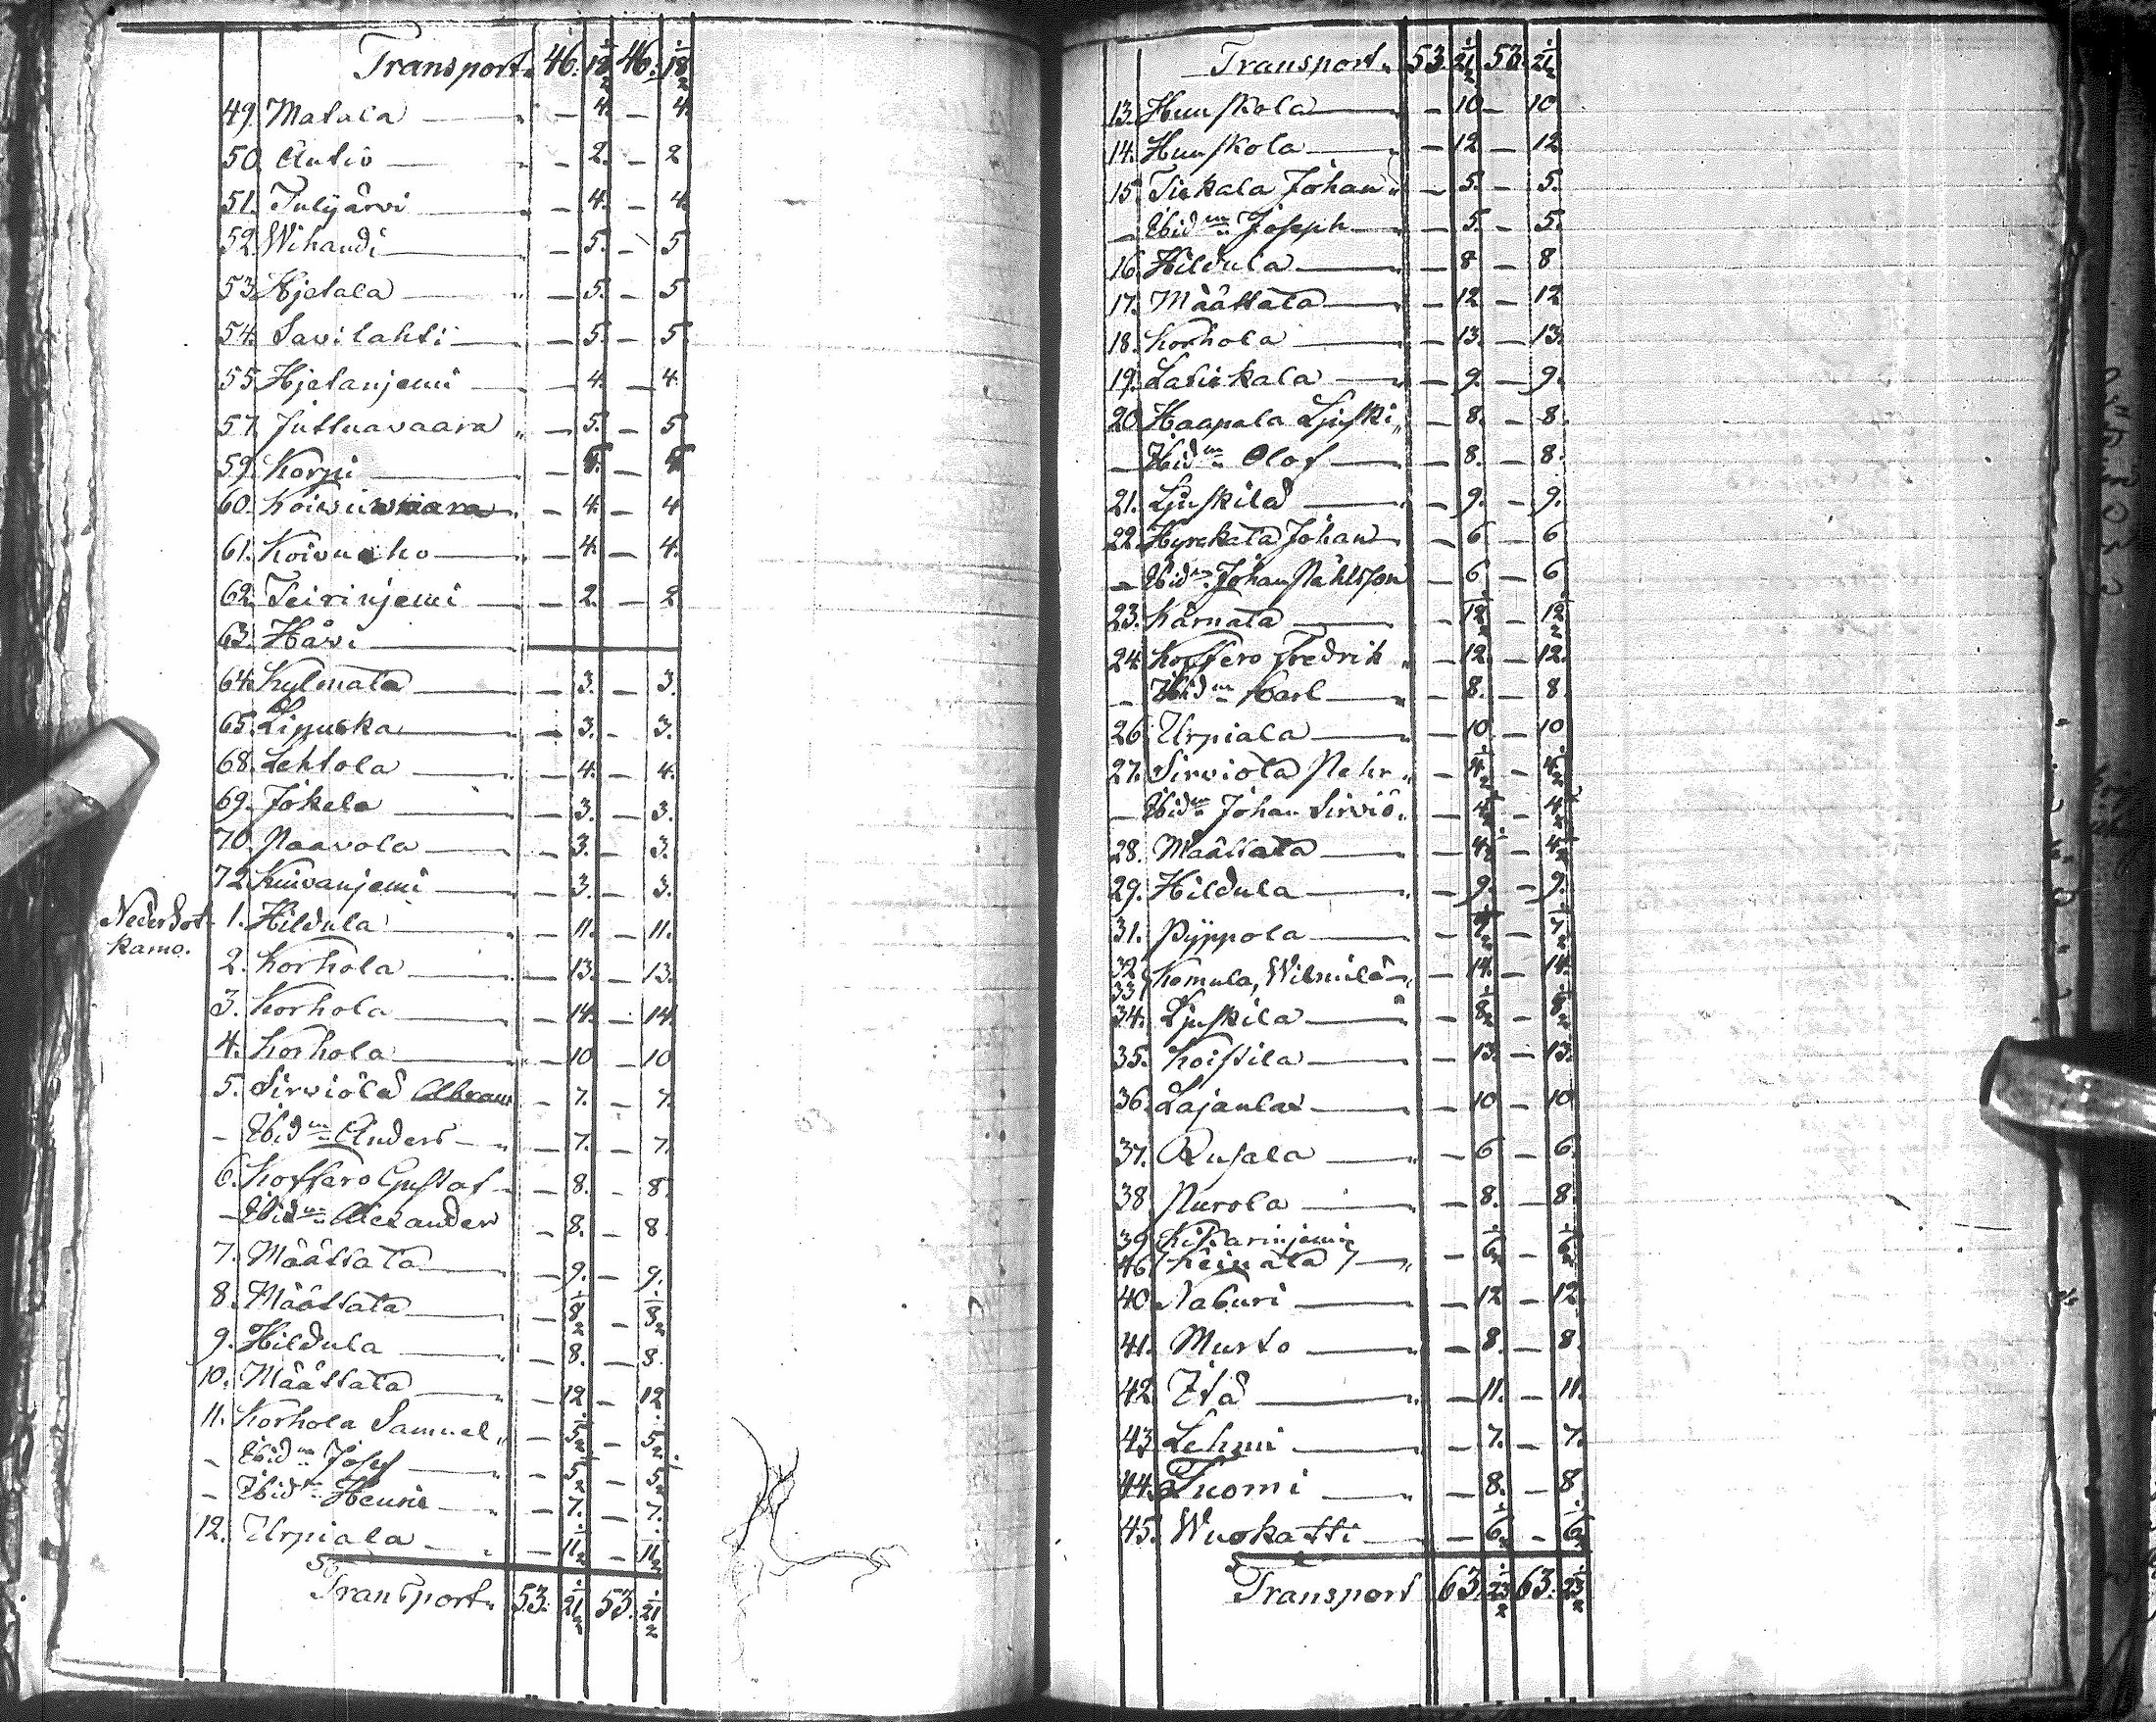 Transport. 46. 18½ 46. 18½
49. Matala — 4. — 4.
50. Autio — 2. — 2
51. Tulijärvi — 4. — 4
52. Wihandi — 5. — 5
53. Hjetala — 5. — 5
54. Savilahti — 5. — 5
55. Hjetanjemi — 4. — 4
57. Juttuavaara — 5. — 5
59. Korpi
60. — 4. — 4
61. Koivuaho — 4. — 4.
62. Teirinjemi — 2. — 2
63. Hävi
64. Kylmätä — 3. — 3.
65. Lipuska — 3. — 3.
68. Lehtola — 4. — 4.
69. Jokela — 3. — 3.
70. Paavola — 3. — 3.
72. Kuivanjemi — 3. — 3.
Neder Sot-
kamo.
1. Hildula — 11. — 11.
2. Korhola — 13. — 13.
3. Korhola — 14. — 14.
4. Korhola — 10 — 10
5. Sirviölä Abram — 7. — 7.
– Ibidm Anders — 7. — 7.
6. Gustaf — 8. — 8.
– Ibidm Alexander — 8. — 8
7. Määttätä — 9. — 9.
8. Määttätä — 8½ — 8½
9. Hildula — 8. — 8.
10. Määttätä — 12 — 12
11. Korhola Samuel — 5½ — 5½
– Ibidm Josef — 5½ — 5½
– Ibidm Henric — 7. — 7.
12. Urpiala — 11½ — 11½
Transport. 53. 21½ 53. 21½
Transport. 53. 21½ 53. 21½
13. Huuskola — 10 — 10
14. Huuskola — 12 — 12
15. Tiekala Johan — 5. — 5.
– Ibidm Joseph — 5. — 5.
16. Hildula — 8 — 8
17. Määttätä — 12 — 12
18. Korhola — 13. — 13.
19. Latiekala — 9. — 9.
20. Haapala — 8. — 8.
– Ibidm Olof — 8. — 8.
21. — 9. — 9.
22. Johan — 6 — 6
– Ibidm Johan Påhlsson — 6 — 6
23. Kärnätä — 12½ — 12½
24. Fredrik — 12. — 12.
– Ibidm Karl — 8. — 8.
26. Urpiala — 10 — 10
27. Sirviötä Pehr — 4½ — 4½
– Ibidm Johan Sirviö — 4½ — 4½
28. Määttätä — 4½ — 4½
29. Hildula — 9. — 9.
31. Pyppölä — 7½ — 7½
32. 33. Komula, Wilmilä — 14. — 14.
34. — 8½ — 8½
35. Koistila — 13. — 13.
36. Lajanlax — 10 — 10
37. Rusala — 6 — 6.
38. Purola — 8. — 8.
39.
46. Keinälä — 6½ — 6½
40. Naburi — 12 — 12
41. Murto — 8. — 8.
42. Itä — 11. — 11.
43. Lehmi — 7. — 7.
44. Tuomi — 8. — 8.
45. Wuokatti — 6½ — 6½
Transport 63. 23½ 63. 23½